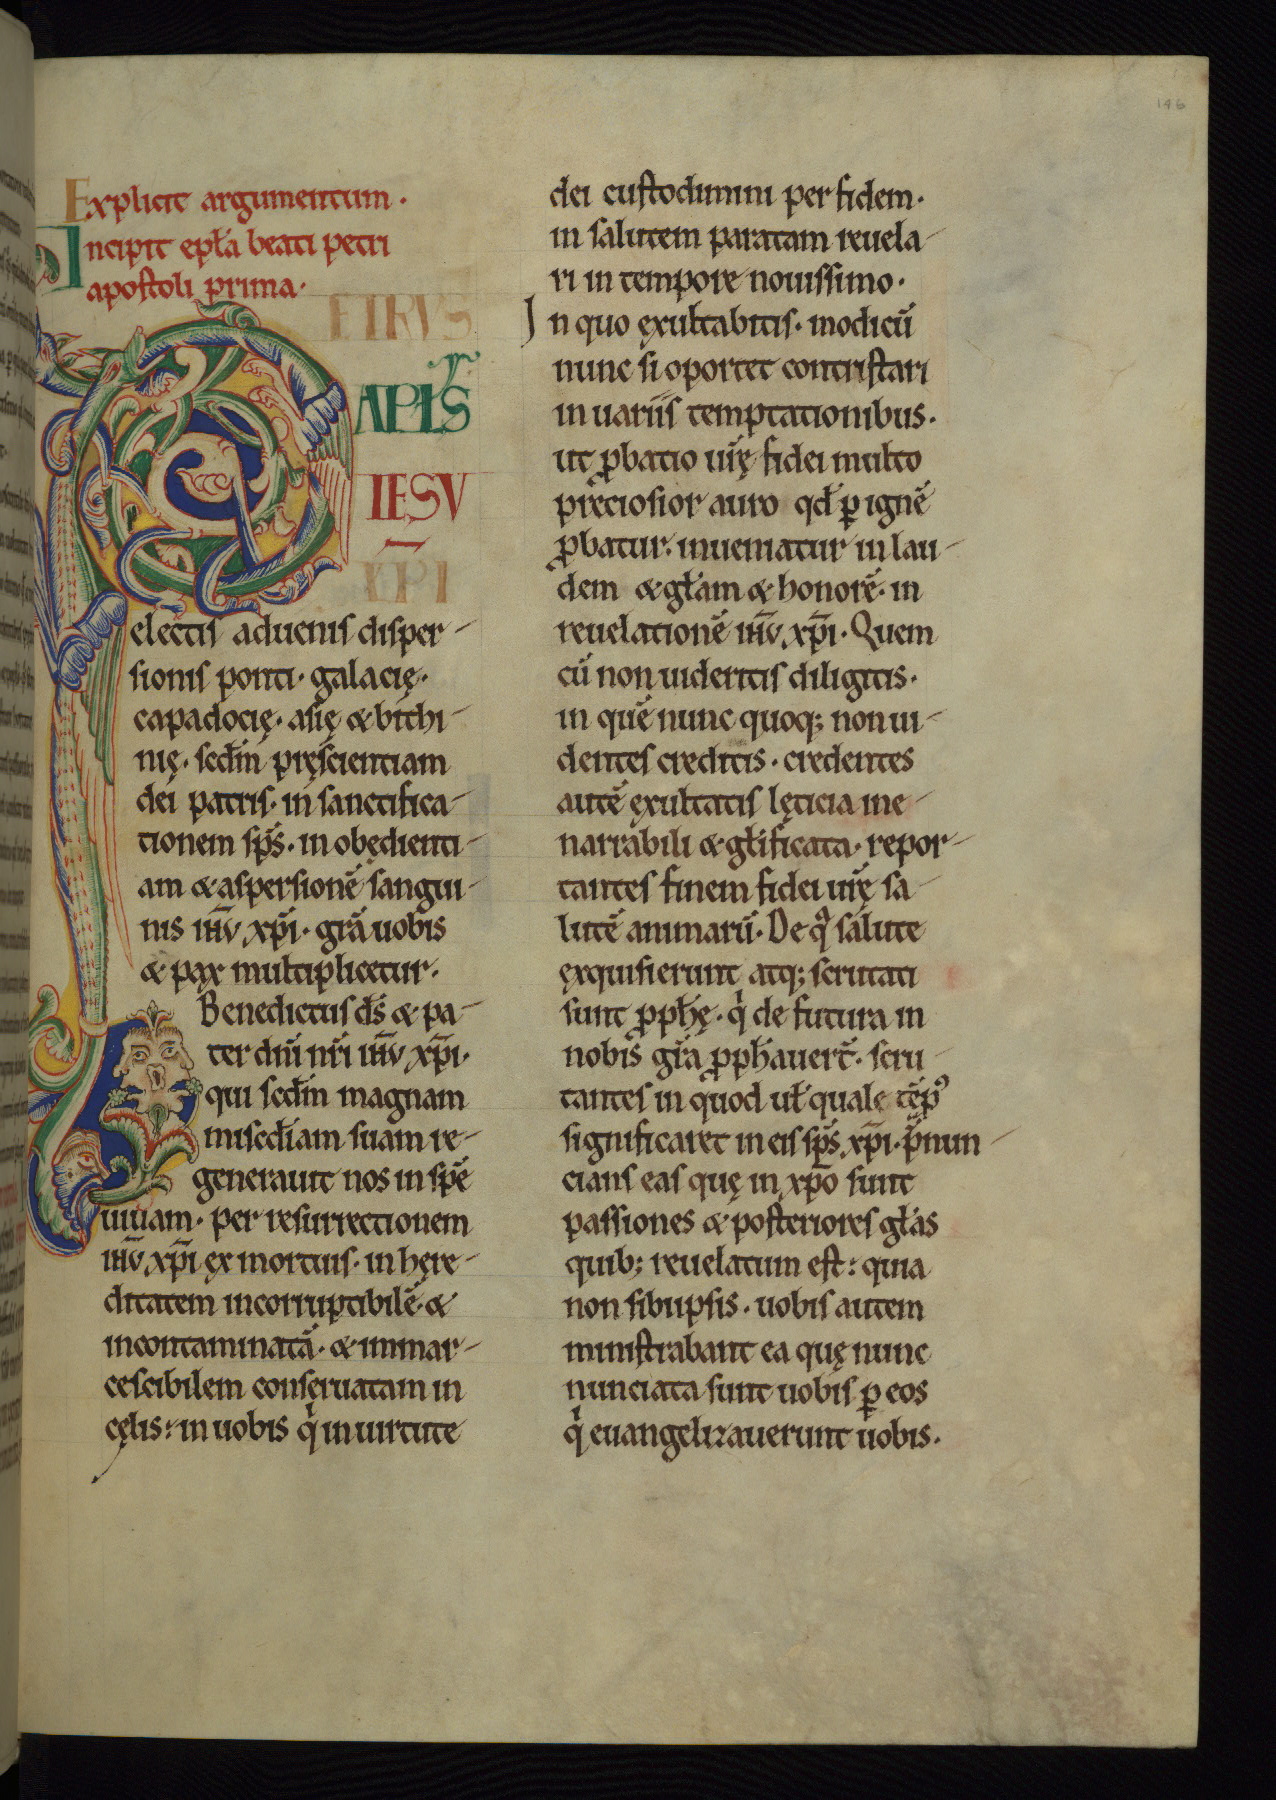 146
Explicit argumentum.
Incipit epła beati petri
apostoli prima.
PETRVS
APŁS
IESV
XPI
electis aduenis disper-
sionis ponti. galacię.
capadocię. asię & bithi-
nię. scđm pręscientiam
dei patris. in sanctifica-
tionem sp̄s. in obędienti-
am & aspersionē sangui-
nis ih̄u xp̄i. gr̄a uobis
& pax multiplicetur.
Benedictus ds̄ & pa-
ter dn̄i nr̄i ih̄u xp̄i.
qui scđm magnam
misc̄diam suam re-
generauit nos in spē
uiuam. per resurrectionem
ih̄u xp̄i ex mortuis. in hęre-
ditatem incorruptibilē. &
incontaminatā. & inmar-
cescibilem conseruatam in
cęlis: in uobis qi in uirtute
dei custodimini per fidem.
in salutem paratam reuela-
ri in tempore nouissimo.
In quo exultabitis. modicū
nunc si oportet contristari
in uariis temptationibus.
ut ꝓbatio ur̄ę fidei multo
preciosior auro qđ ꝑ ignē
ꝓbatur. inueniatur in lau-
dem & głam & honorē. in
reuelationē ih̄u xp̄i. Quem
cū non uideritis diligitis.
in quē nunc quoq; non ui-
dentes creditis. credentes
autē exultatis lęticia ine-
narrabili & głificata. repor-
tantes finem fidei ur̄ę sa-
lutē animarū. De qa salute
exquisierunt atq; scrutati
sunt ꝓph̄ę. qi de futura in
nobis gr̄a ꝓph̄auer̄t. scru-
tantes in quod uł quale tēp᾽
significaret in eis sp̄s xp̄i. p̄nun-
cians eas quę in xp̄o sunt
passiones & posteriores głas
quib; reuelatum est: quia
non sibi ipsis. uobis autem
ministrabant ea quę nunc
nunciata sunt uobis ꝑ eos
qi euangelizauerunt uobis.